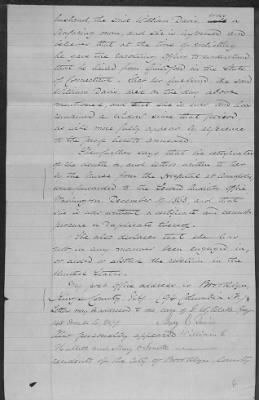 husband, the said William Davis was a
seafaring man, and she is informed and
believes that at the time of enlisting
he gave the enrolling officer to understand
that he hailed from Guilford in the State
of Connecticut. That her husband the said
William Davis died on the day above
mentioned, and that she is now and has
remained a widow since that period
as will more fully appear by reference
to the proof hereto annexed.
She further says that the certificate
of his death and letters written to her
by the Nurse from the Hospital at
was forwarded to the Second Auditor's Office
Washington December 19. 1863, and that
she is now without a certificate and cannot
procure a duplicate thereof.
She also declares that she has
not in any manner been engaged in,
or aided or abetted the rebellion in the
United States.
My post office address is Brooklyn,
Kings County, 94 Columbia St,
Letters may be addressed to me care of
Mary E. Davis
Also personally appeared William E.
and Mary
residents of the City of Brooklyn County